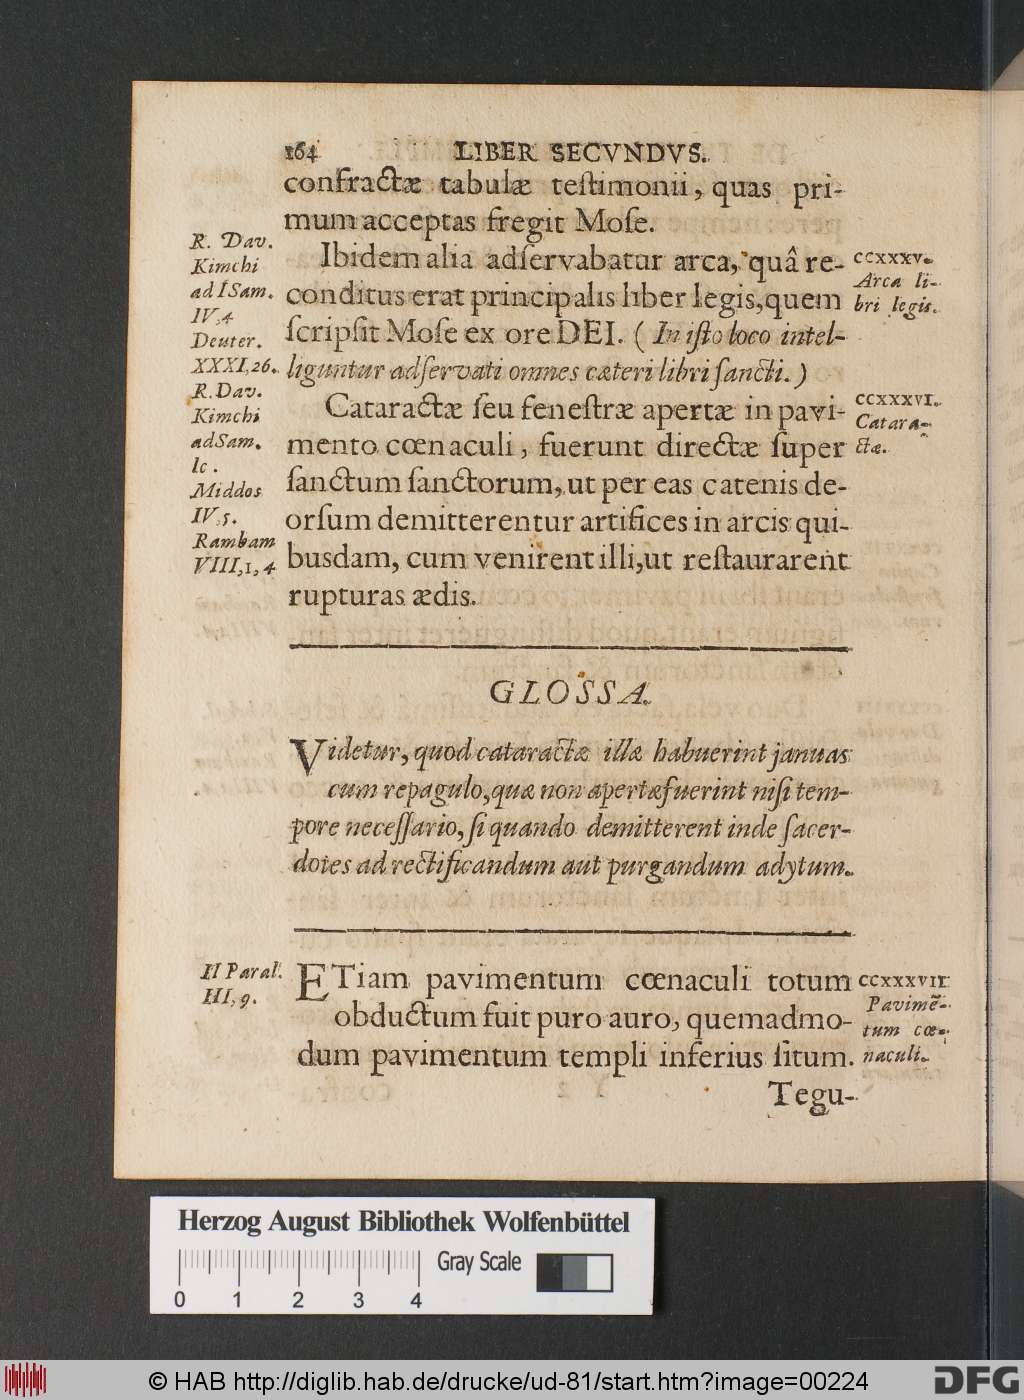 164 LIBER SECVNDVS.
confractæ tabulæ teſtimonii, quas pri-
mum acceptas fregit Moſe.
R. Dav.
Kimchi
ad I Sam.
IV, 4
Deuter.
XXXI, 26.
Ibidem alia adſervabatur arca, quâ re-
conditus erat principalis liber legis, quem
ſcripſit Moſe ex ore DEI. (In iſto loco intel-
liguntur adſervati omnes cæteri libri ſancti.)
CCXXXV.
Arca li-
bri legis.
R. Dav.
Kimchi
ad Sam.
lc.
Middos
IV, 5.
Rambam
VIII, 1, 4
Cataractæ ſeu feneſtræ apertæ in pavi-
mento cœnaculi, fuerunt directæ ſuper
ſanctum ſanctorum, ut per eas catenis de-
orſum demitterentur artifices in arcis qui-
busdam, cum venirent illi, ut reſtaurarent
rupturas ædis.
CCXXXVI.
Catara-
ctæ.
GLOSSA.
Videtur, quod cataractæ illæ habuerint januas
cum repagulo, quæ non apertæ fuerint niſi tem-
pore neceſſario, ſi quando demitterent inde ſacer-
dotes ad rectificandum aut purgandum adytum.
II Paral.
III, 9.
ETiam pavimentum cœnaculi totum
obductum fuit puro auro, quemadmo-
dum pavimentum templi inferius ſitum.
CCXXXVII
Pavimẽ-
tum cœ-
naculi.
Tegu-
Herzog August Bibliothek Wolfenbüttel
Gray Scale
0 1 2 3 4
© HAB http://diglib.hab.de/drucke/ud-81/start.htm?image=00224
DFG